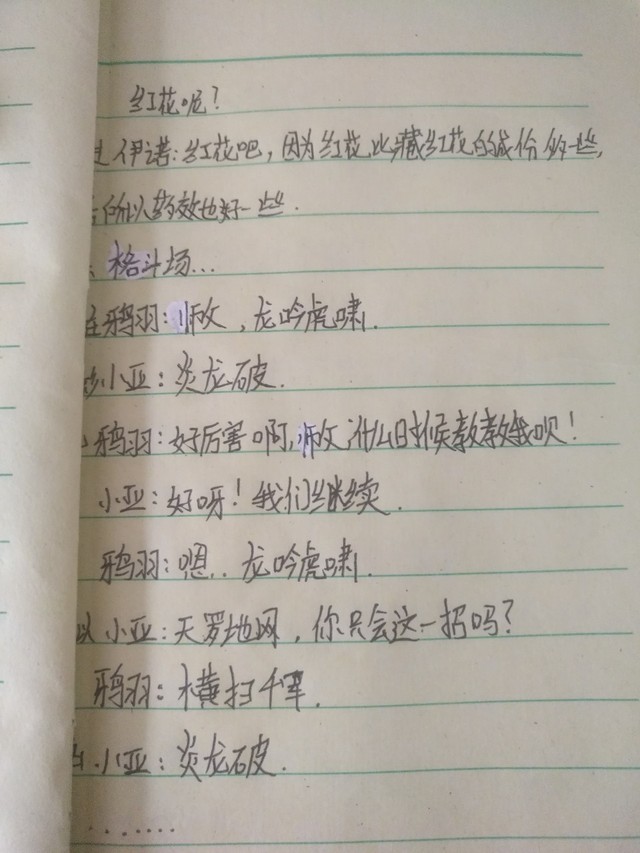 红花呢？
伊诺：红花吧，因为红花比藏红花的成份多一些，
所以药效也好一些.
格斗场...
鸦羽：师父，龙吟虎啸.
小亚：炎龙破.
鸦羽：好厉害啊，师父什么时候教教我呗！
小亚：好呀！我们继续.
鸦羽：嗯.. 龙吟虎啸.
小亚：天罗地网，你只会这一招吗？
鸦羽：横扫千军.
小亚：炎龙破.
.......